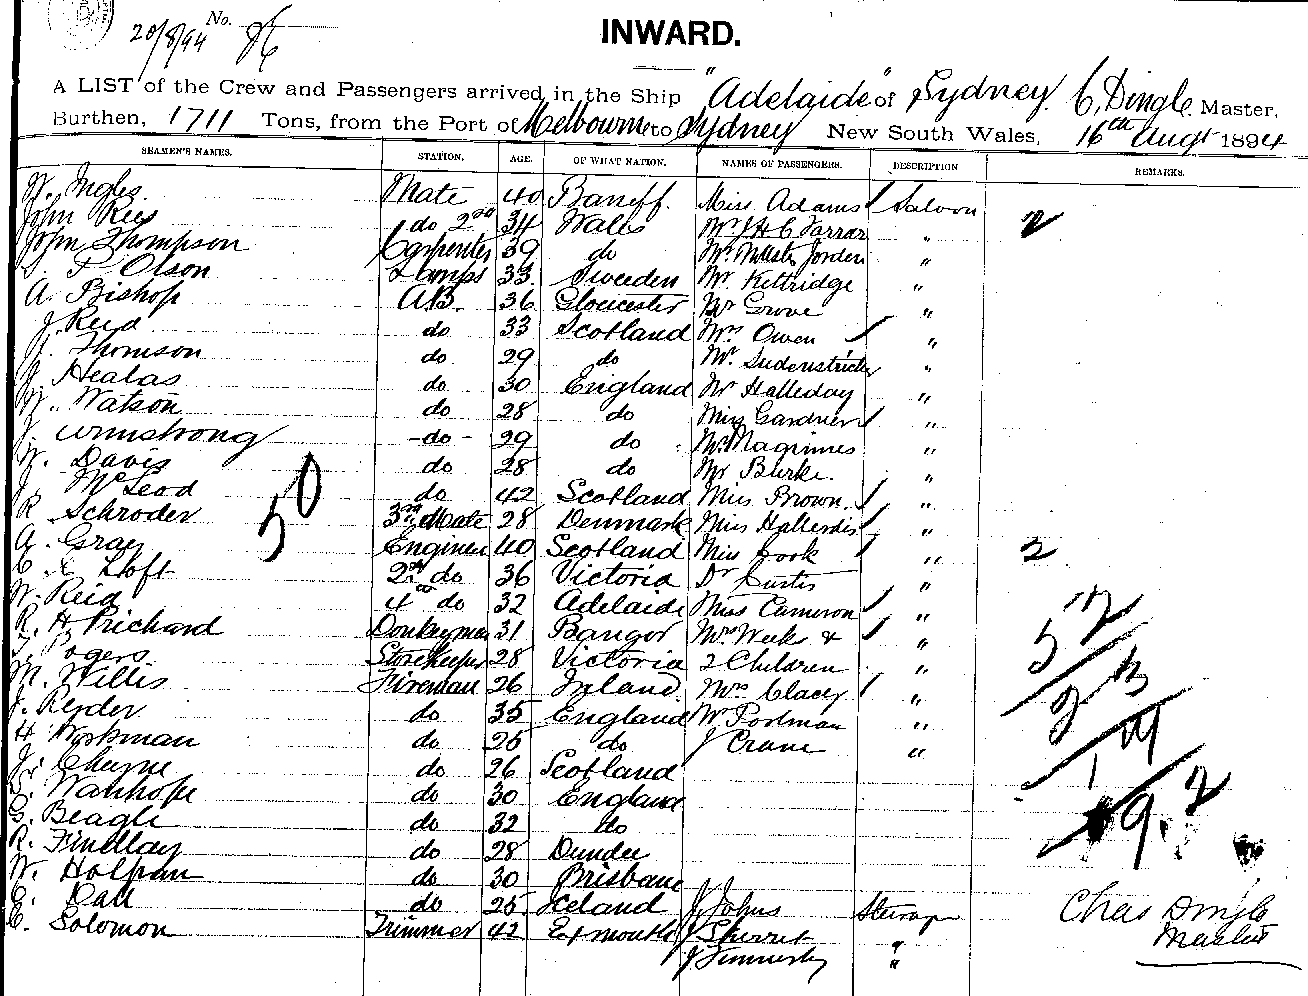 20/8/94 No. 86
INWARD.
A LIST of the Crew and Passengers arrived in the Ship "Adelaide" of Sydney C. Dingle Master,
Burthen, 1711 Tons, from the Port of Melbourne to Sydney New South Wales, 16th Augt 1894
SEAMEN'S NAMES. STATION. AGE. OF WHAT NATION. NAMES OF PASSENGERS. DESCRIPTION REMARKS.
W. Ingles Mate 40 Banff. Miss Adams Saloon
John Rees do 2nd 34 Wales Mr J H C Farrar " 2
John Thompson Carpenter 39 do Mr Jorden "
P Olson Lamps 33 Sweden Mr Kettridge "
A. Bishop AB. 36 Gloucester Mr Grove "
J. Reid do 33 Scotland Mrs Owen "
Thomson do 29 do Mr. "
Healas do 30 England Mr Halleday "
W. Watson do 28 do Miss Gardner "
J. Armstrong do 29 do Mr Magrimes "
W. Davis do 28 do Mr Burke "
J McLeod do 42 Scotland Miss Brown "
50
R Schroder 3rd Mate 28 Denmark Miss "
A. Gray Engineer 40 Scotland Miss Cook " 2
Loft 2nd do 36 Victoria Dr Curtis "
W. Reid 4th do 32 Adelaide Miss Cameron "
R. H Prichard Donkeyman 31 Bangor Mrs Weeks & "
Rogers Storekeeper 28 Victoria 2 Children "
M. Willis Fireman 26 Ireland Mrs Clacey "
J. Reyder do 35 England W Portman "
H Workman do 25 do J Crane "
J. Cheyne do 26 Scotland
Wanhope do 30 England
G. Beagle do 32 do
R. Findlay do 28 Dundee
W. Holpan do 30 Brisbane
do 25 Iceland J Johns Steerage
C. Solomon Trimmer 42 Exmouth J Sherret "
J "
52
23
19
9.2
Chas Dingle
Master